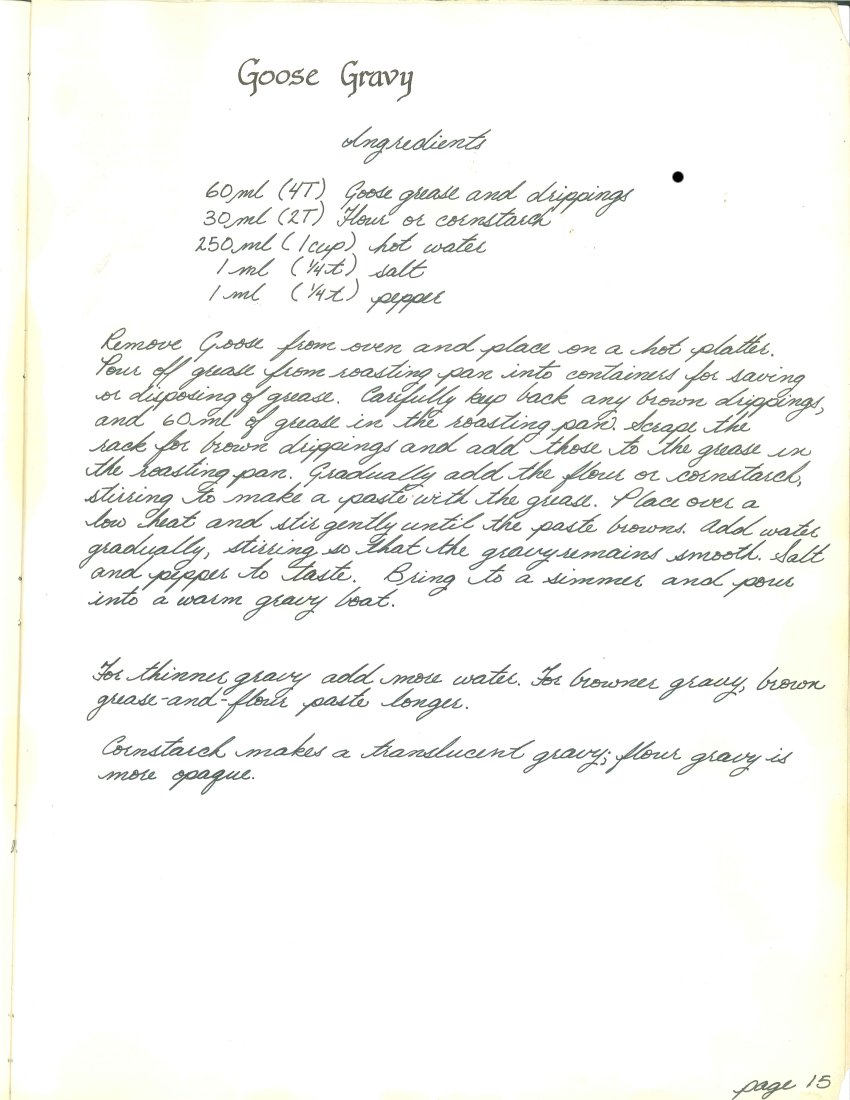 Goose Gravy
Ingredients
60 ml (4T) Goose grease and drippings
30 ml (2T) Flour or cornstarch
250 ml (1 cup) hot water
1 ml (1/4 t) salt
1 ml (1/4 t) pepper
Remove Goose from oven and place on a hot platter.
Pour off grease from roasting pan into containers for saving
or disposing of grease. Carefully keep back any brown drippings,
and 60 ml of grease in the roasting pan. Scrape the
rack for brown drippings and add those to the grease in
the roasting pan. Gradually add the flour or cornstarch,
stirring to make a paste with the grease. Place over a
low heat and stir gently until the paste browns. Add water
gradually, stirring so that the gravy remains smooth. Salt
and pepper to taste. Bring to a simmer and pour
into a warm gravy boat.
For thinner gravy add more water. For browner gravy, brown
grease-and-flour paste longer.
Cornstarch makes a translucent gravy; flour gravy is
more opaque.
page 15